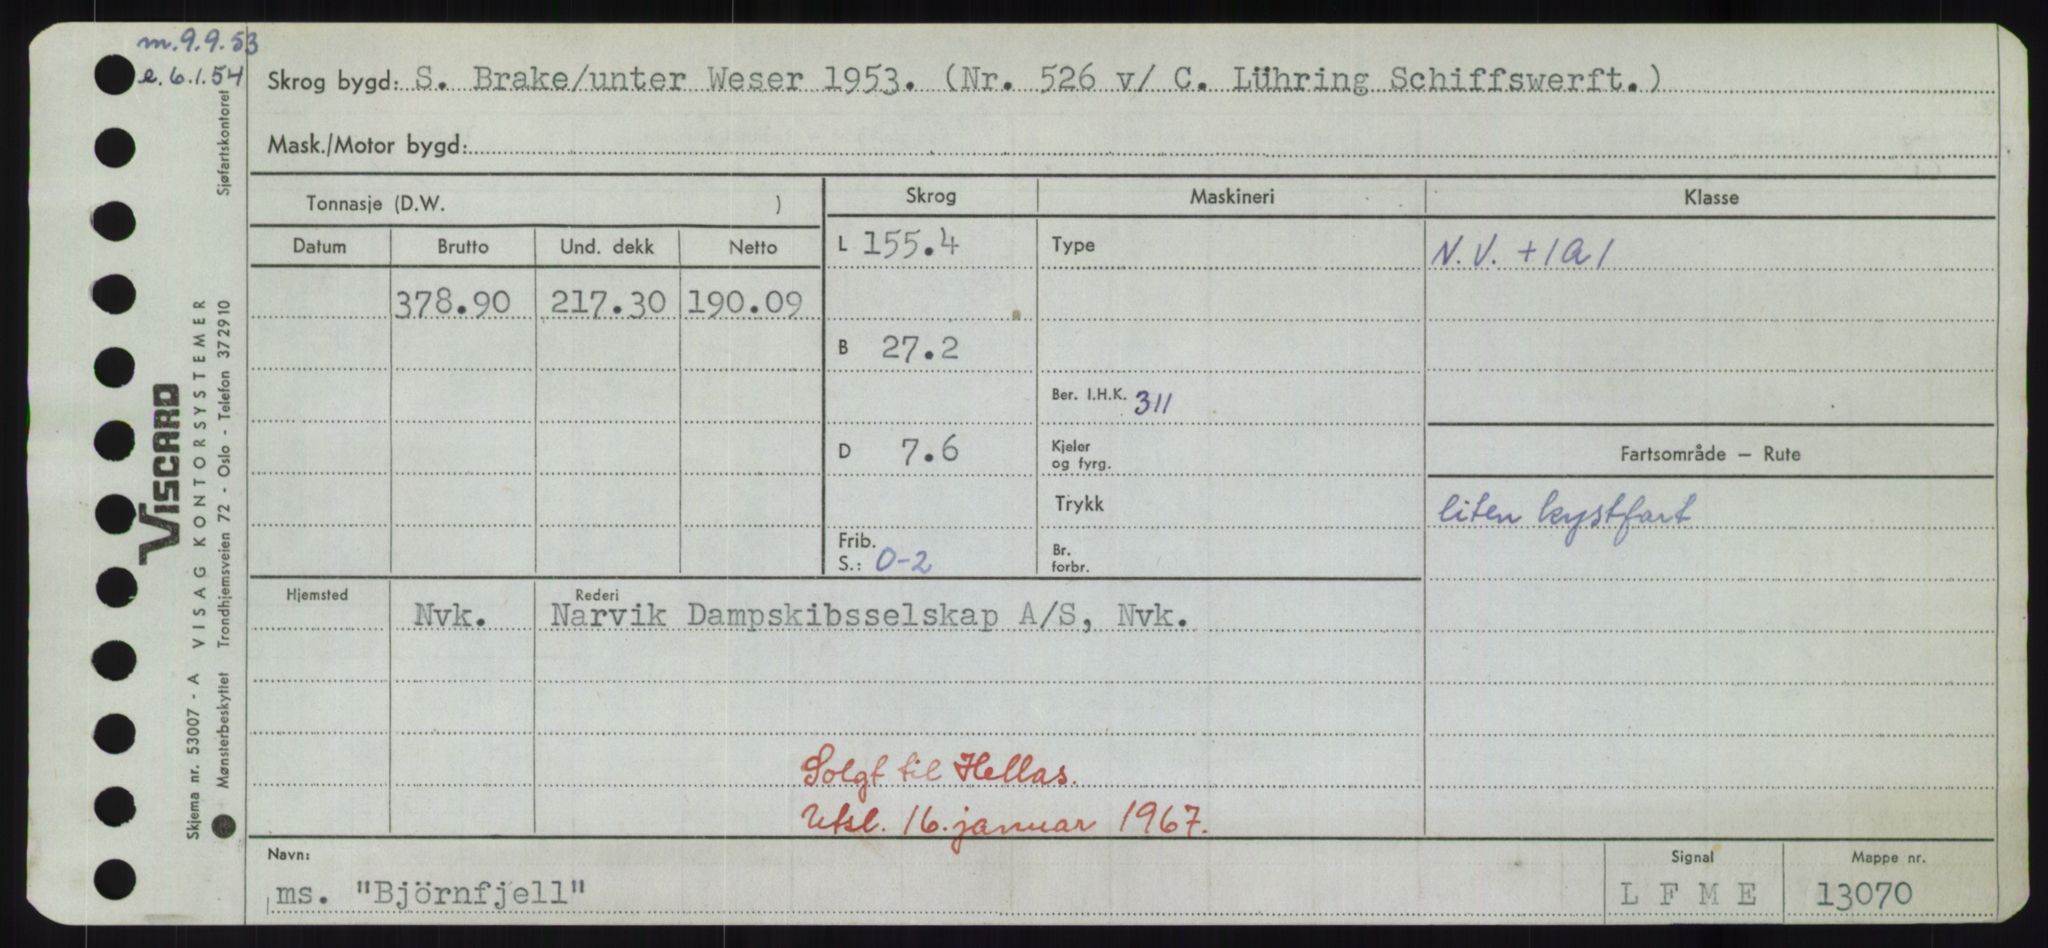 m. 9.9.53
e. 6.1.54
Skrog bygd: S. Brake/unter Weser 1953. (Nr. 526 v/ C. Lühring Schiffswerft.)
Mask./Motor bygd:
Tonnasje (D.W. )
Skrog Maskineri Klasse
Datum Brutto Und. dekk Netto
L 155.4 Type N.V. +1A1
378.90 217.30 190.09
B 27.2
Ber. I.H.K. 311
D 7.6 Kjeler og fyrg. Fartsområde — Rute
Trykk liten kystfart
Frib. S.: 0-2 Br. forbr.
Hjemsted Rederi
Nvk. Narvik Dampskibsselskap A/S, Nvk.
Solgt til Hellas.
Utsl. 16. januar 1967.
Navn: Signal Mappe nr.
ms. "Björnfjell" L F M E 13070
VISCARD
Skjema nr. 53007 - A VISAG KONTORSYSTEMER
Mønsterbeskyttet Trondhjemsveien 72 - Oslo - Telefon 372910 Sjøfartskontoret